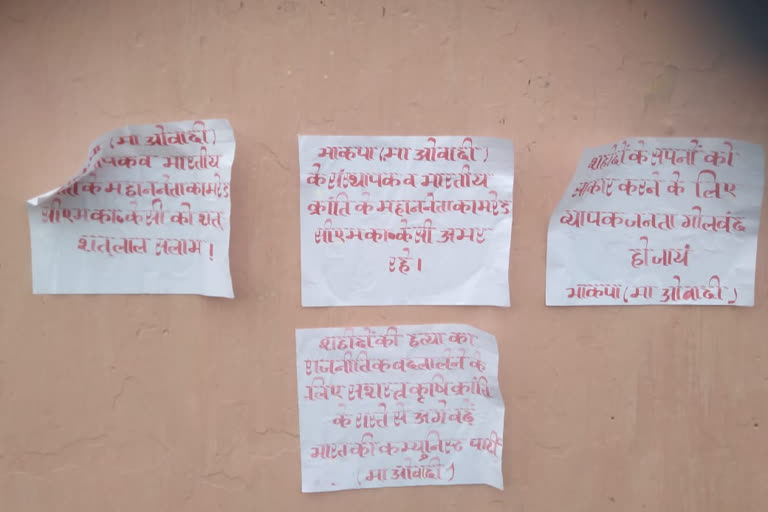 (मा ओवादी)
पकव भारतीय
के महान नेता कामरेड
सीएम का० केसी को शत्
शत् लाल सलाम !
भाकपा (मा ओवादी)
के संस्थापक व भारतीय
क्रांति के महान नेता कामरेड
सीएम का० केसी अमर
रहे।
शहीदों के सपनों को
आकार करने के लिए
व्यापक जनता गोलवंद
हो जायं
भाकपा (मा ओवादी)
शहीदों की हत्या का
राजनीतिक वदला लेने के
लिए सशस्त्र कृषि क्रांति
के रास्ते से अगे वढ़ें
भारत की कम्युनिस्ट पार्टी
(मा ओवादी)